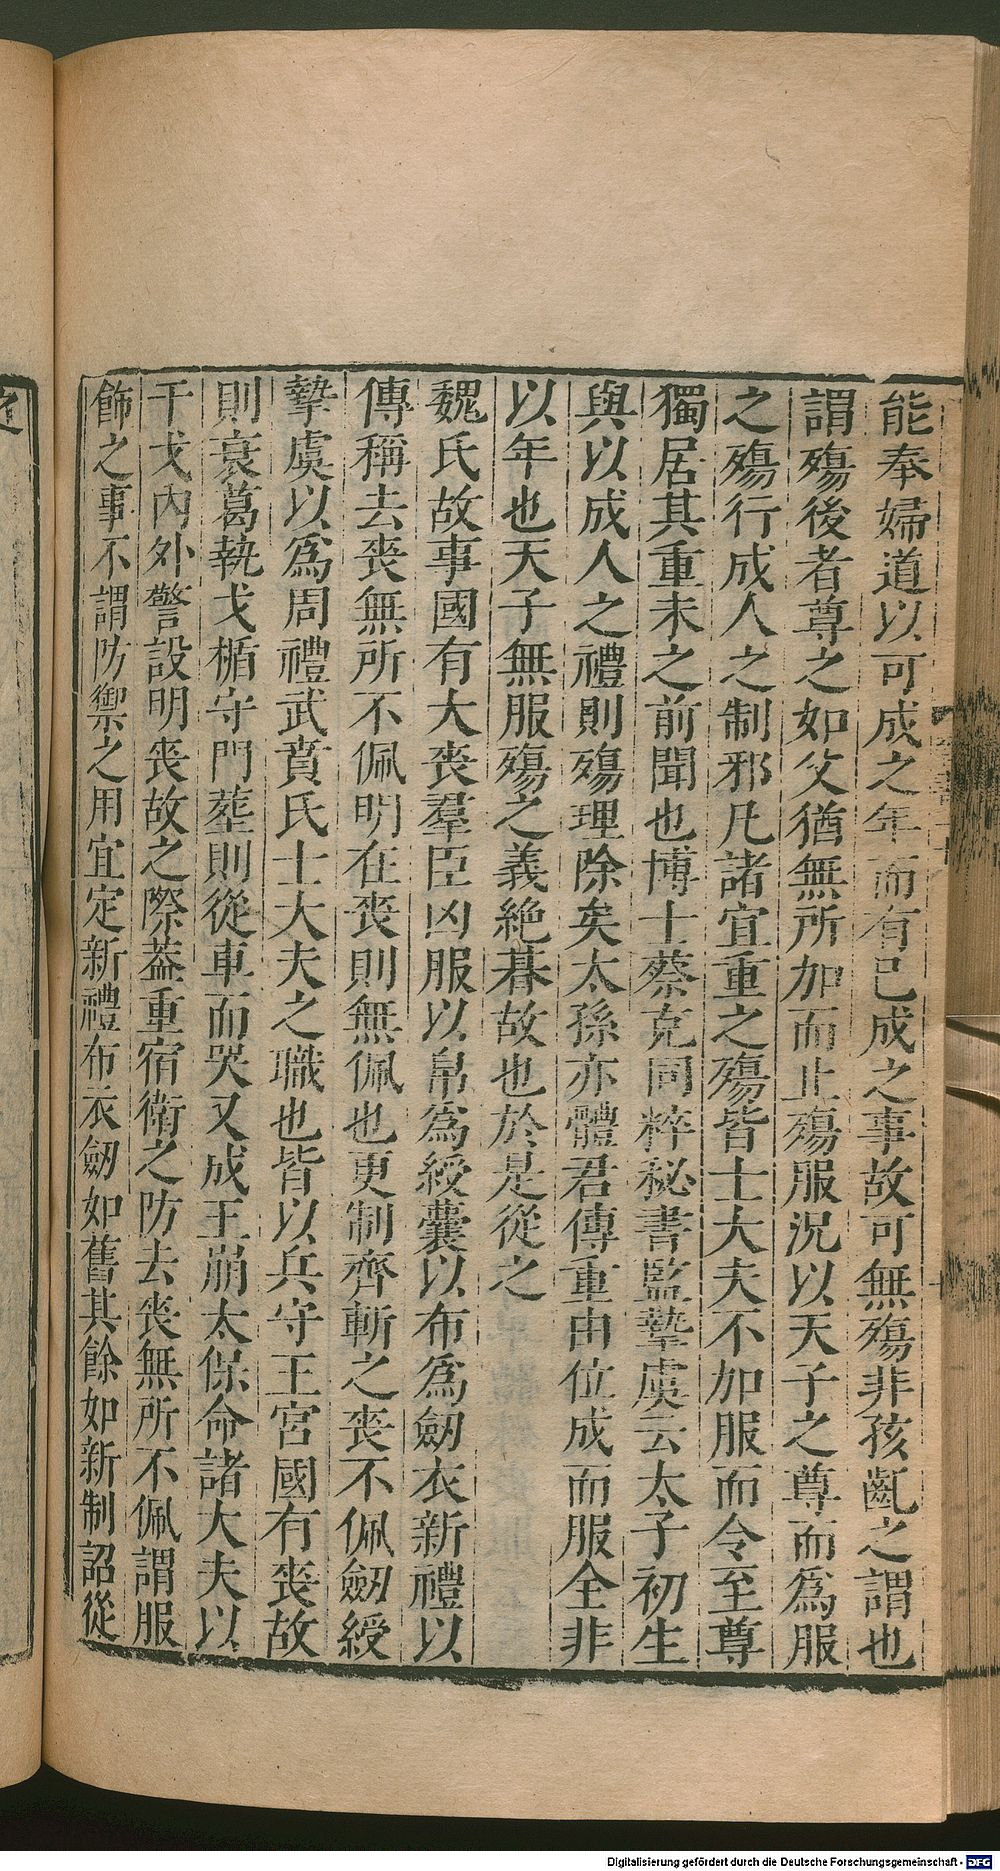 能奉婦道以可成之年而有已成之事故可無殤非孩齓之謂也
謂殤後者尊之如父猶無所加而止殤服況以天子之尊而爲服
之殤行成人之制邪凡諸宜重之殤皆士大夫不加服而令至尊
獨居其重未之前聞也博士蔡克同粹秘書監摯虞云太子初生
與以成人之禮則殤理除矣太孫亦體君傳重由位成而服全非
以年也天子無服殤之義絶朞故也於是從之
魏氏故事國有大喪羣臣凶服以帛爲綬囊以布爲劒衣新禮以
傳稱去喪無所不佩明在喪則無佩也更制齊斬之喪不佩劒綬
摯虞以爲周禮武賁氏士大夫之職也皆以兵守王宮國有喪故
則衰葛執戈楯守門葬則從車而哭又成王崩太保命諸大夫以
干戈內外警設明喪故之際葢重宿衛之防去喪無所不佩謂服
飾之事不謂防禦之用宜定新禮布衣劒如舊其餘如新制詔從
Digitalisierung gefördert durch die Deutsche Forschungsgemeinschaft - DFG